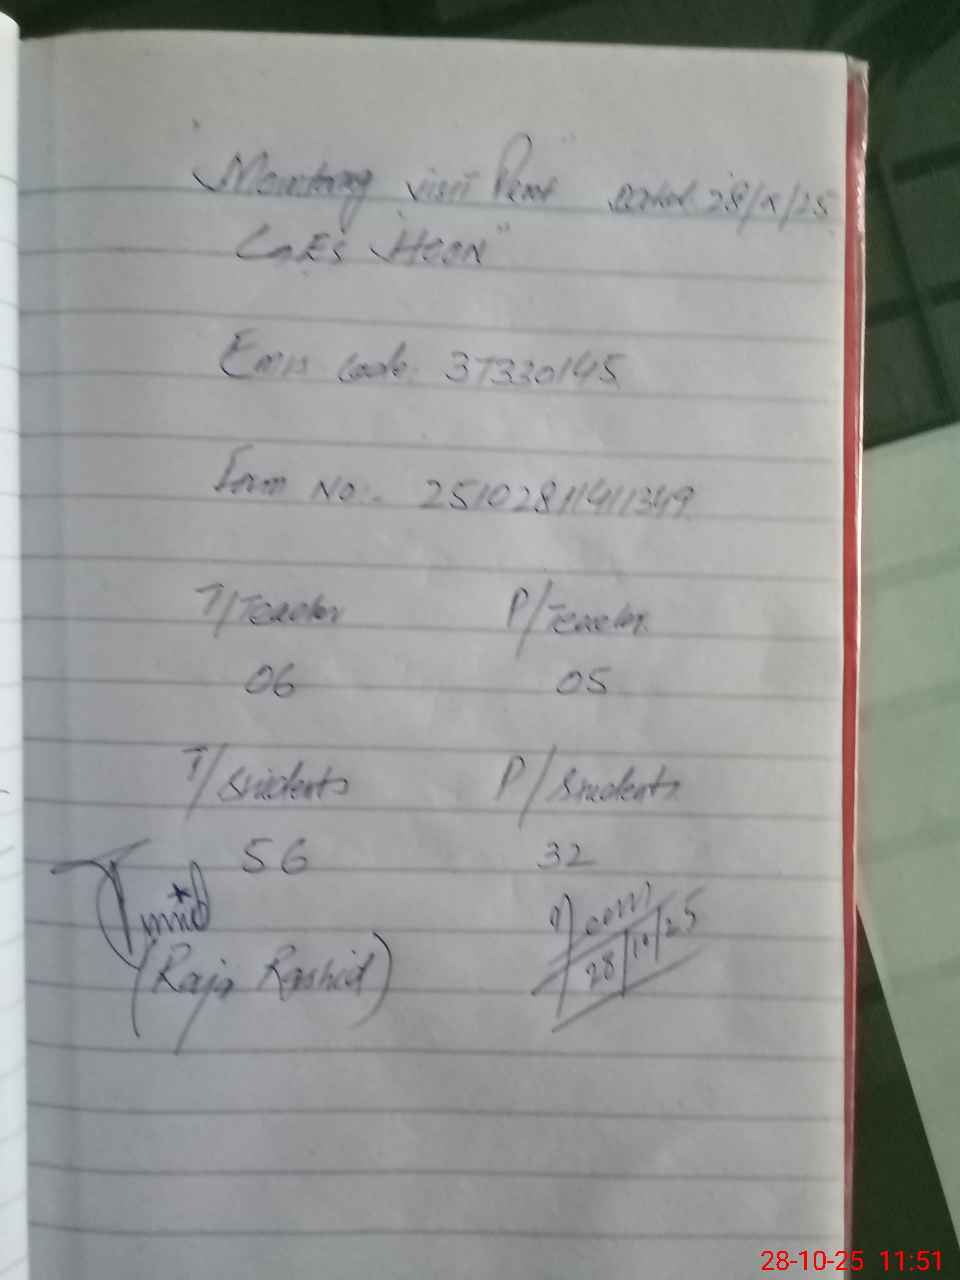 "Monitoring visit Perf" dated 28/10/25
GGES "HOON"
Emis code: 37330145
Form No:- 2510281141349
T/Teacher P/Teacher
06 05
T/Students P/Students
56 32
(Raja Rashid)
28/10/25
28-10-25 11:51